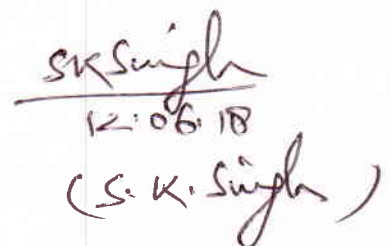 SKSingh
12.06.18
(S. K. Singh)